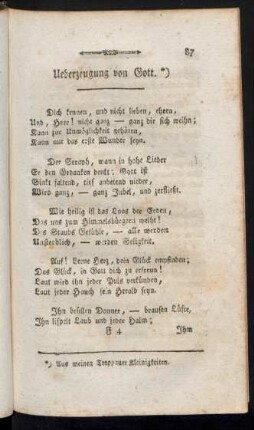 87
Ueberzeugung von Gott. *)
Dich kennen, und nicht lieben, ehren,
Und, Herr! nicht ganz — ganz dir sich weihn;
Kann zur Unmöglichkeit gehören,
Kann nur das erste Wunder seyn.
Der Seraph, wann in hohe Lieder
Er den Gedanken denkt: Gott ist
Sinkt fallend, tief anbetend nieder,
Wird ganz, — ganz Jubel, und zerfließt.
Wie heilig ist das Loos der Erden,
Das uns zum Himmelsbürgern weiht!
Des Staubs Gefühle, — alle werden
Unsterblich, — werden Seligkeit.
Auf! Lerne Herz, dein Glück empfinden;
Das Glück, in Gott dich zu erfreun!
Laut wird ihn jeder Puls verkünden,
Laut jeder Hauch sein Herald seyn.
Ihn brüllen Donner, — brausen Lüfte,
Ihn lispelt Laub und jeder Halm;
F 4 Ihm
*) Aus meinen Troppauer Kleinigkeiten.